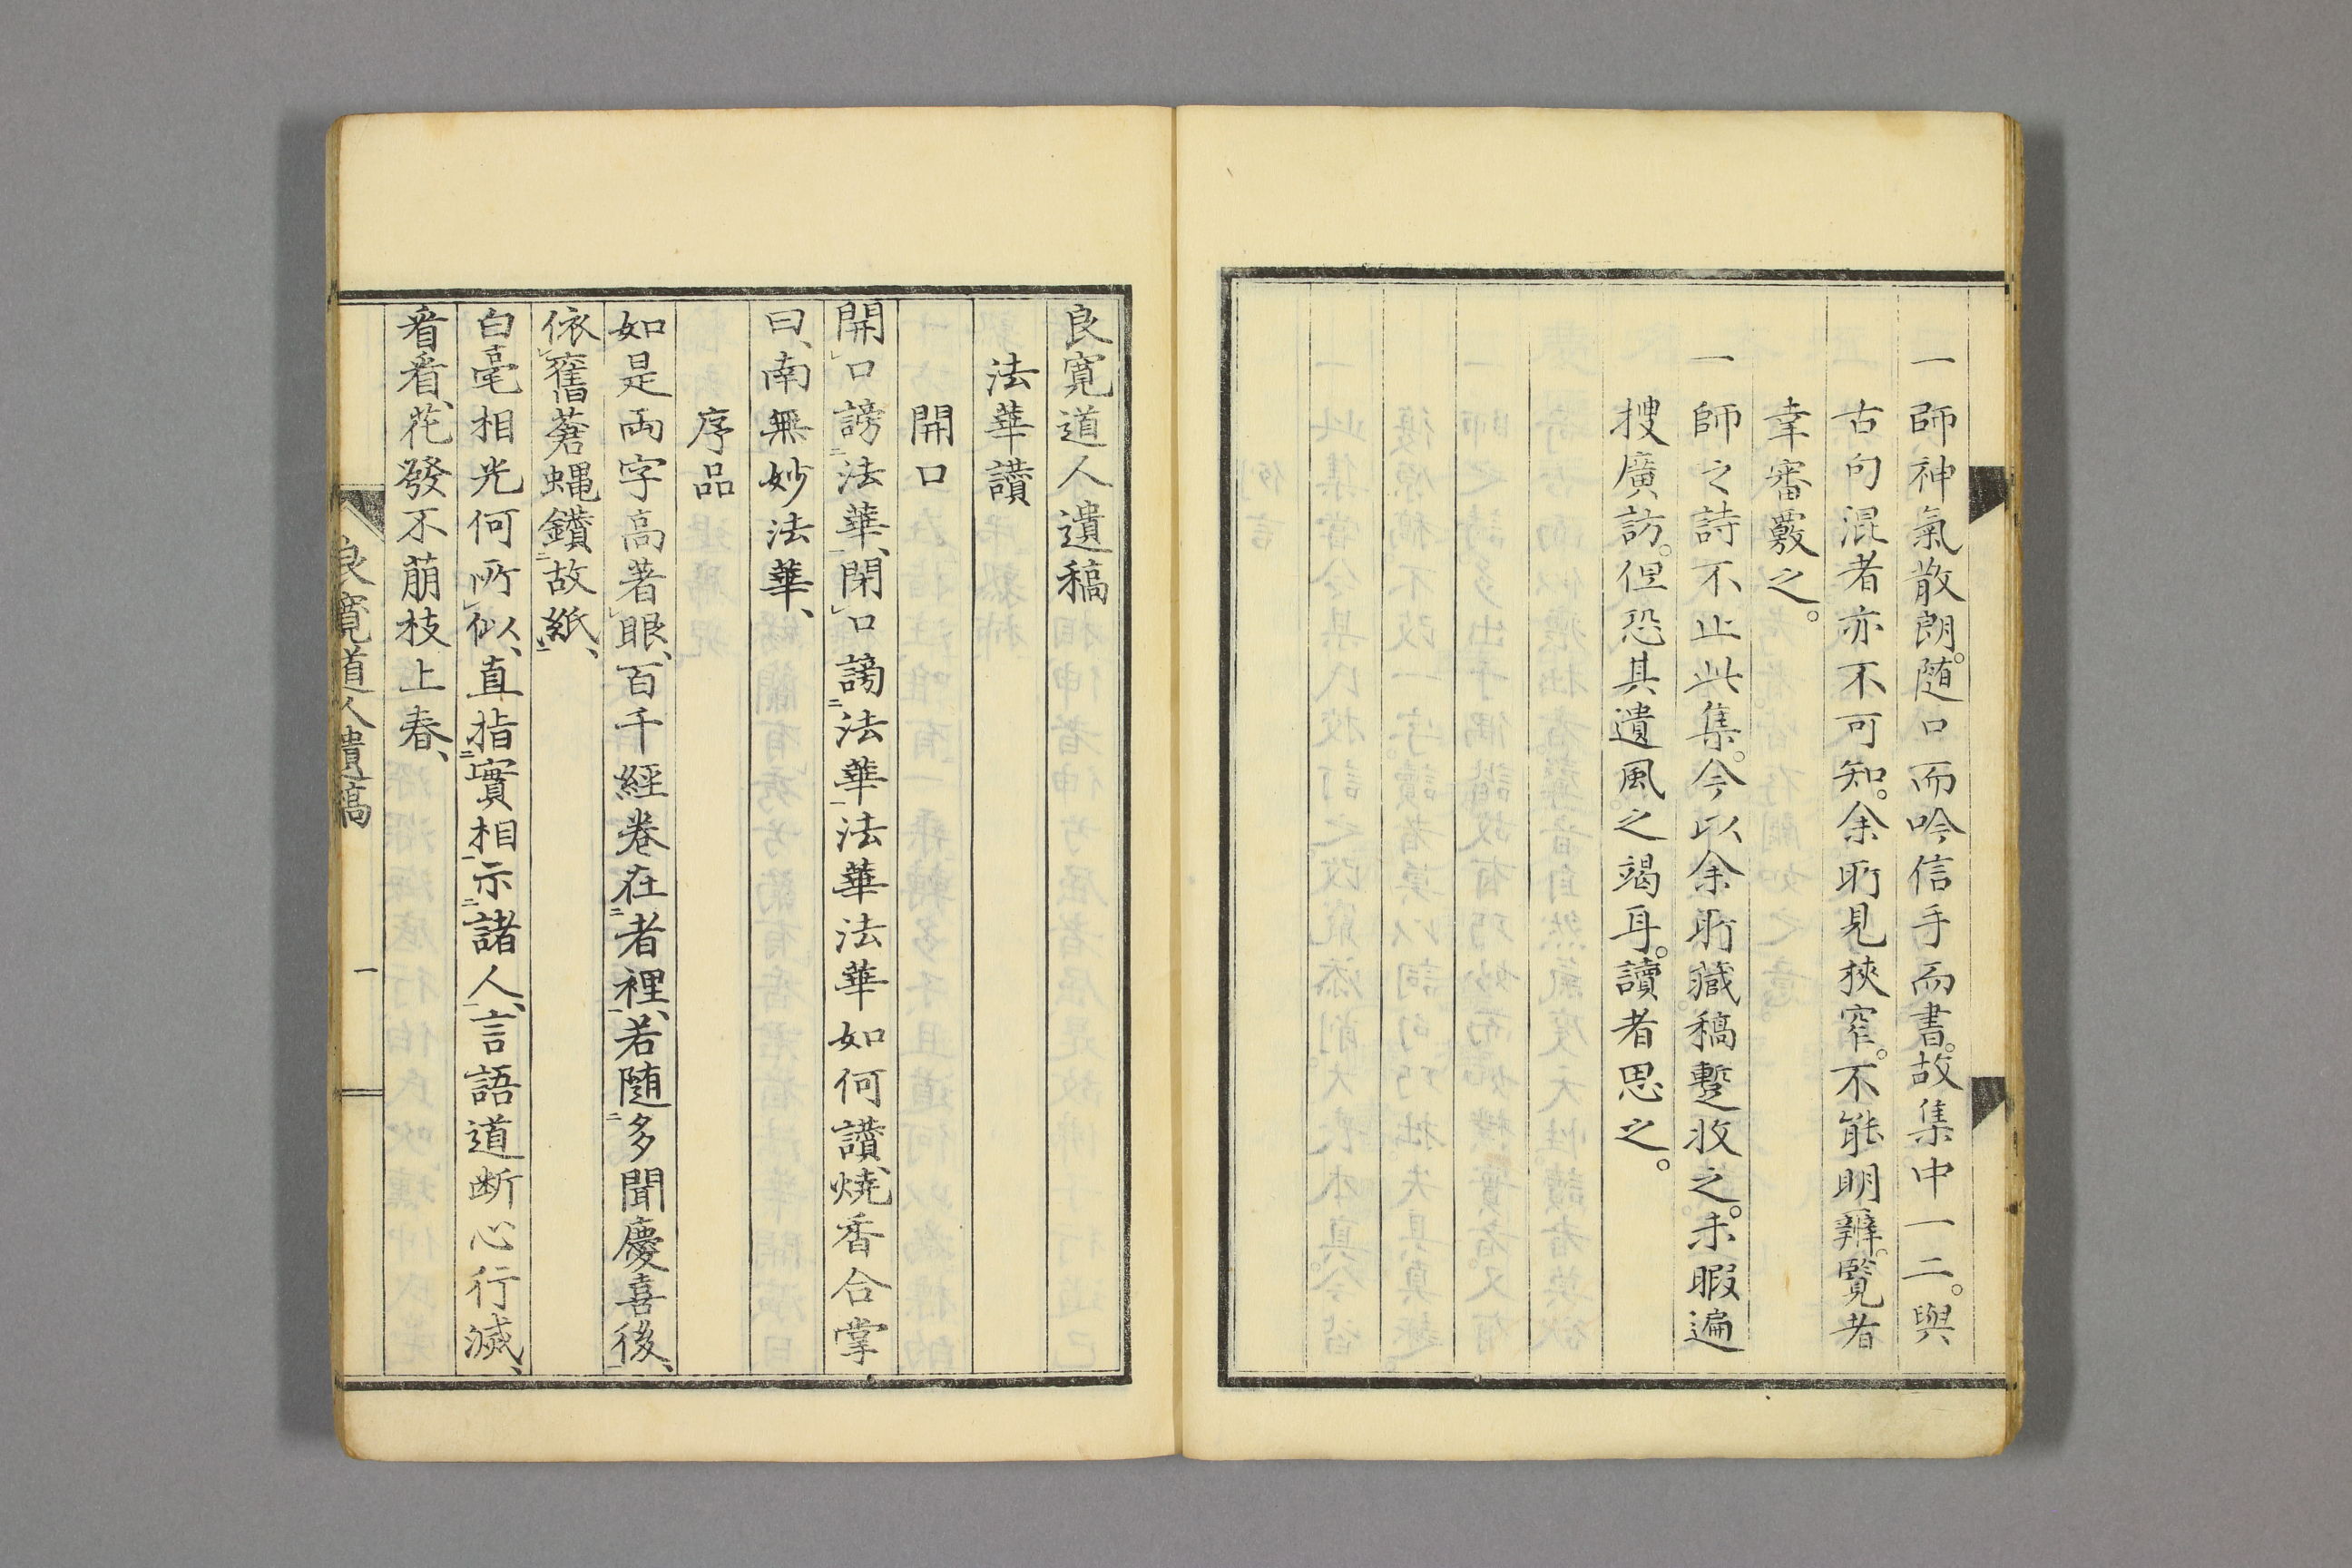 一師神氣散朗。随口而吟信手而書。故集中一二。與
古句混者亦不可知。余所見狹窄。不能明辨。覽者
幸審覈之。
一師之詩不止此集。今以余所藏稿蹔收之。未暇遍
搜廣訪。但恐其遺風之竭耳。讀者思之。
良寛道人遺稿
法華讃
開口
開口謗法華、閉口謗法華法華法華如何讃、燒香合掌
曰、南無妙法華、
序品
如是兩字高著眼、百千經卷在者裡、若随多聞慶喜後、
依舊蒼蠅鑚故紙、
白毫相光何所似、直指實相示諸人、言語道断心行滅、
看看花發不萠枝上春、
良寛道人遺稿
一